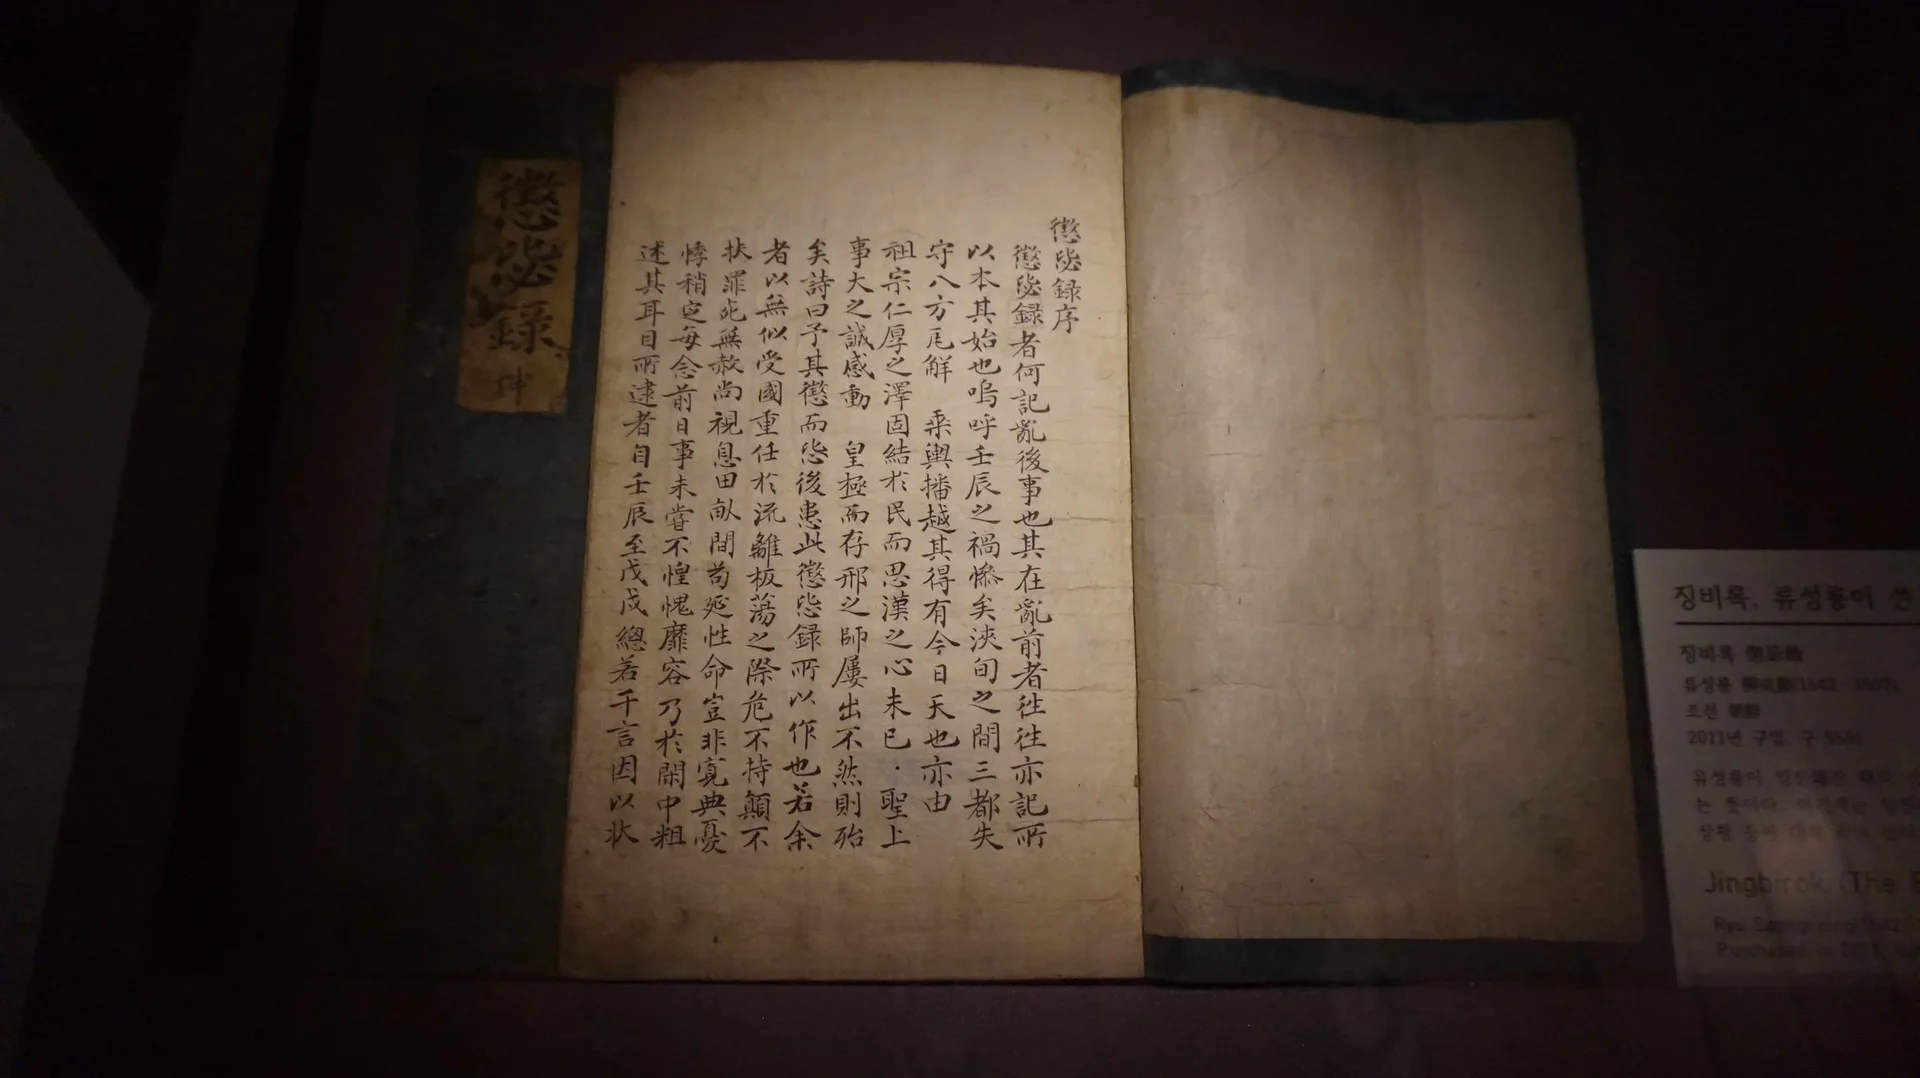 懲毖録序
懲毖録者何記亂後事也其在亂前者徃徃亦記所
以本其始也嗚呼壬辰之禍慘矣浹旬之間三都失
守八方瓦解 乘輿播越其得有今日天也亦由
祖宗仁厚之澤固結於民而思漢之心未已 聖上
事大之誠感動 皇極而存邢之師屢出不然則殆
矣詩曰予其懲而毖後患此懲毖録所以作也若余
者以無似受國重任於流離板蕩之際危不持顚不
扶罪死無赦尚視息田畝間苟延性命豈非寛典憂
悸稍定每念前日事未嘗不惶愧靡容乃於閑中粗
述其耳目所逮者自壬辰至戊戌總若干言因以状
懲毖録 坤
징비록, 류성룡이 쓴
징비록
류성룡
조선 朝鮮
2011년 구입, 구
Jingbirok (The